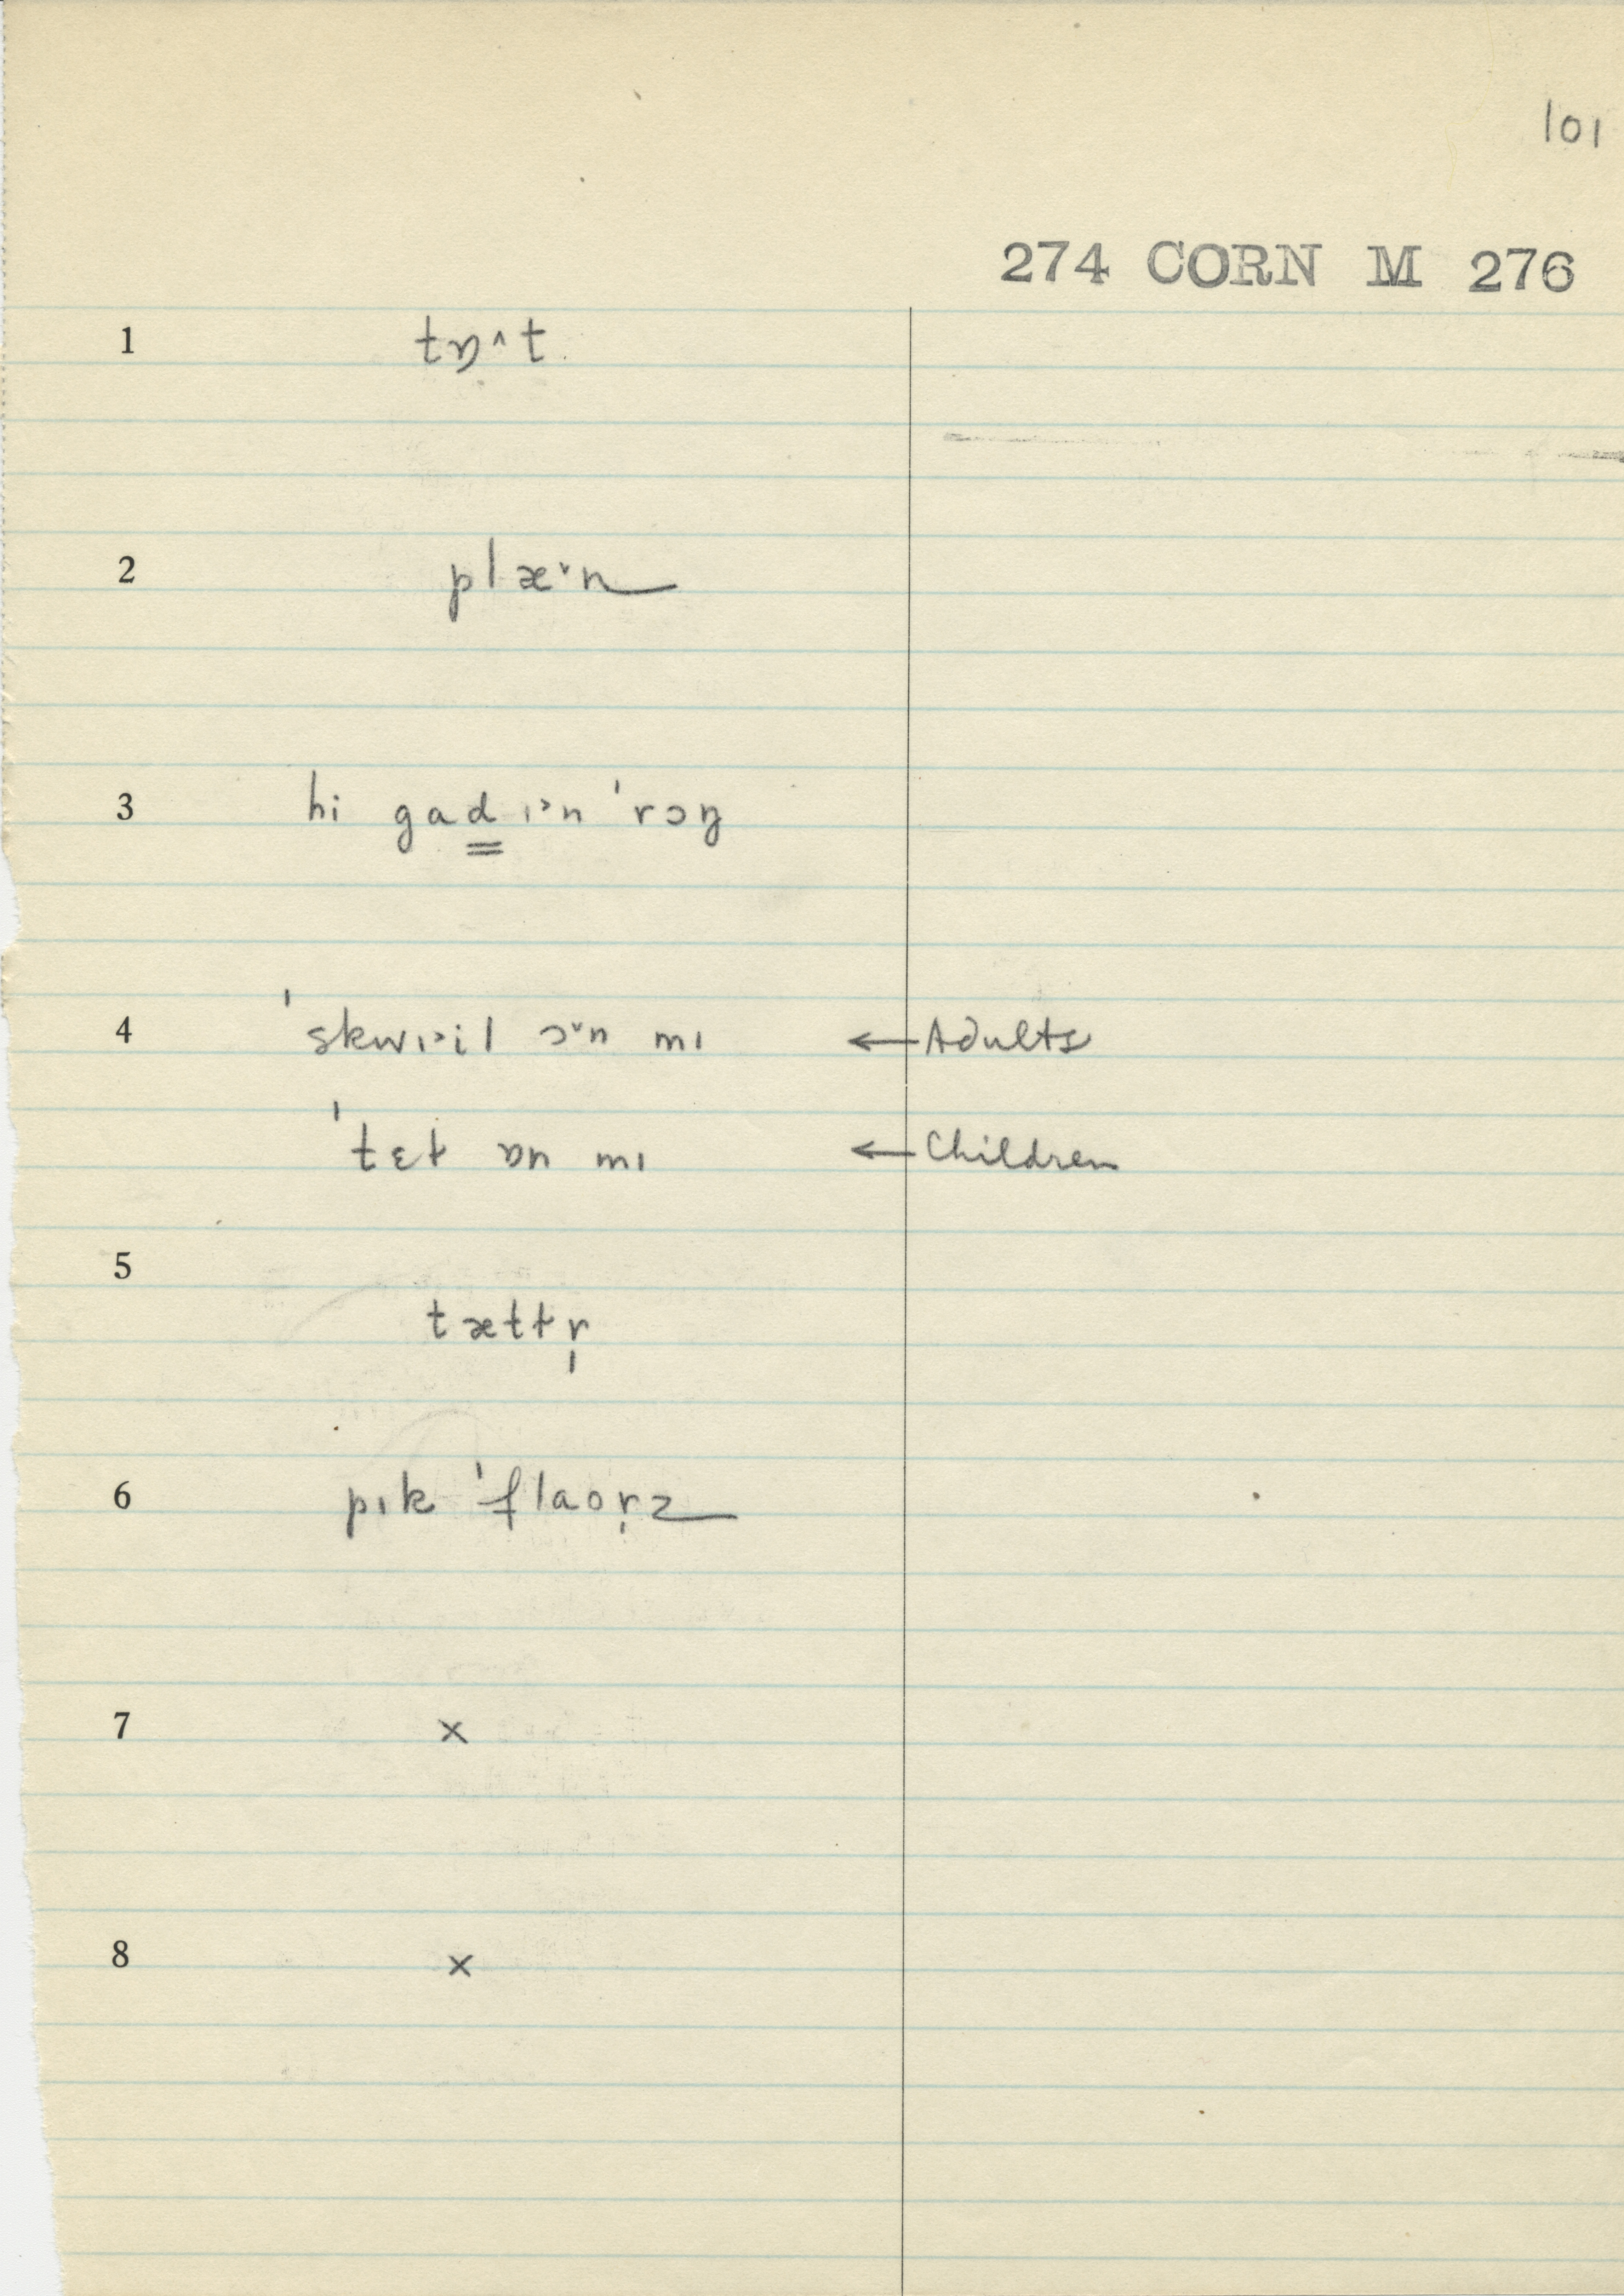 101
274 CORN M 276
1 tɒ̣˄t
2 plæ˅n
3 hi gad̳ ɪ˃n ˈrɔŋ
4 ˈskwɪ˃il ɔ˅n mɪ ← Adults
ˈtɛt ɒn mɪ ← Children
5 tættr̩
6 pɪk ˈflaor̩z
7 ×
8 ×